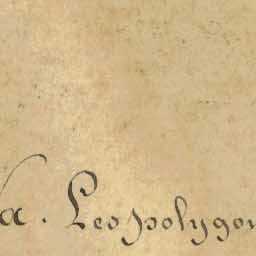 a. Leopolygon